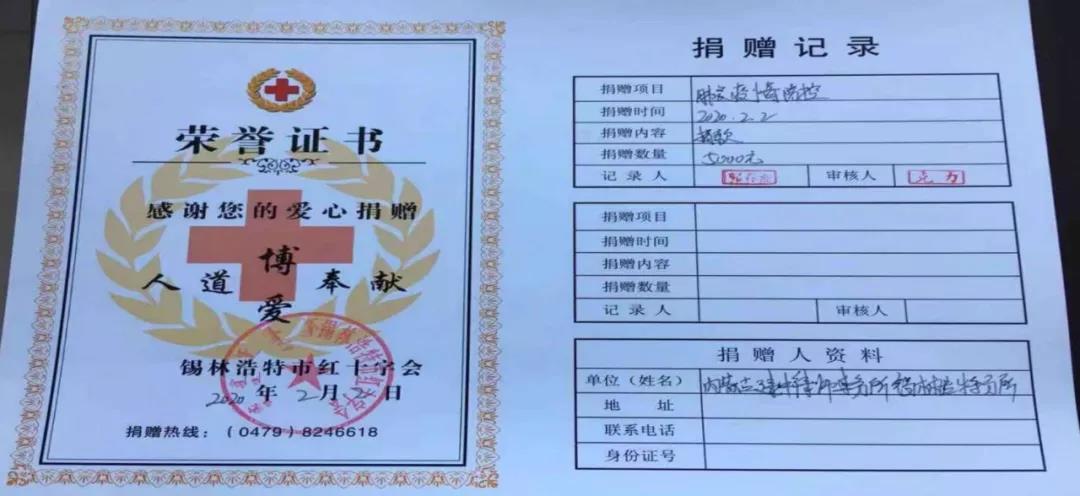 荣誉证书
感谢您的爱心捐赠
人道 博爱 奉献
锡林浩特市红十字会
2020年2月2日
捐赠热线：（0479）8246618
捐赠记录
捐赠项目
捐赠时间 2020.2.2
捐赠内容 捐款
捐赠数量 5000元
记录人 审核人
捐赠项目
捐赠时间
捐赠内容
捐赠数量
记录人 审核人
捐赠人资料
单位（姓名） 内蒙古
地址
联系电话
身份证号